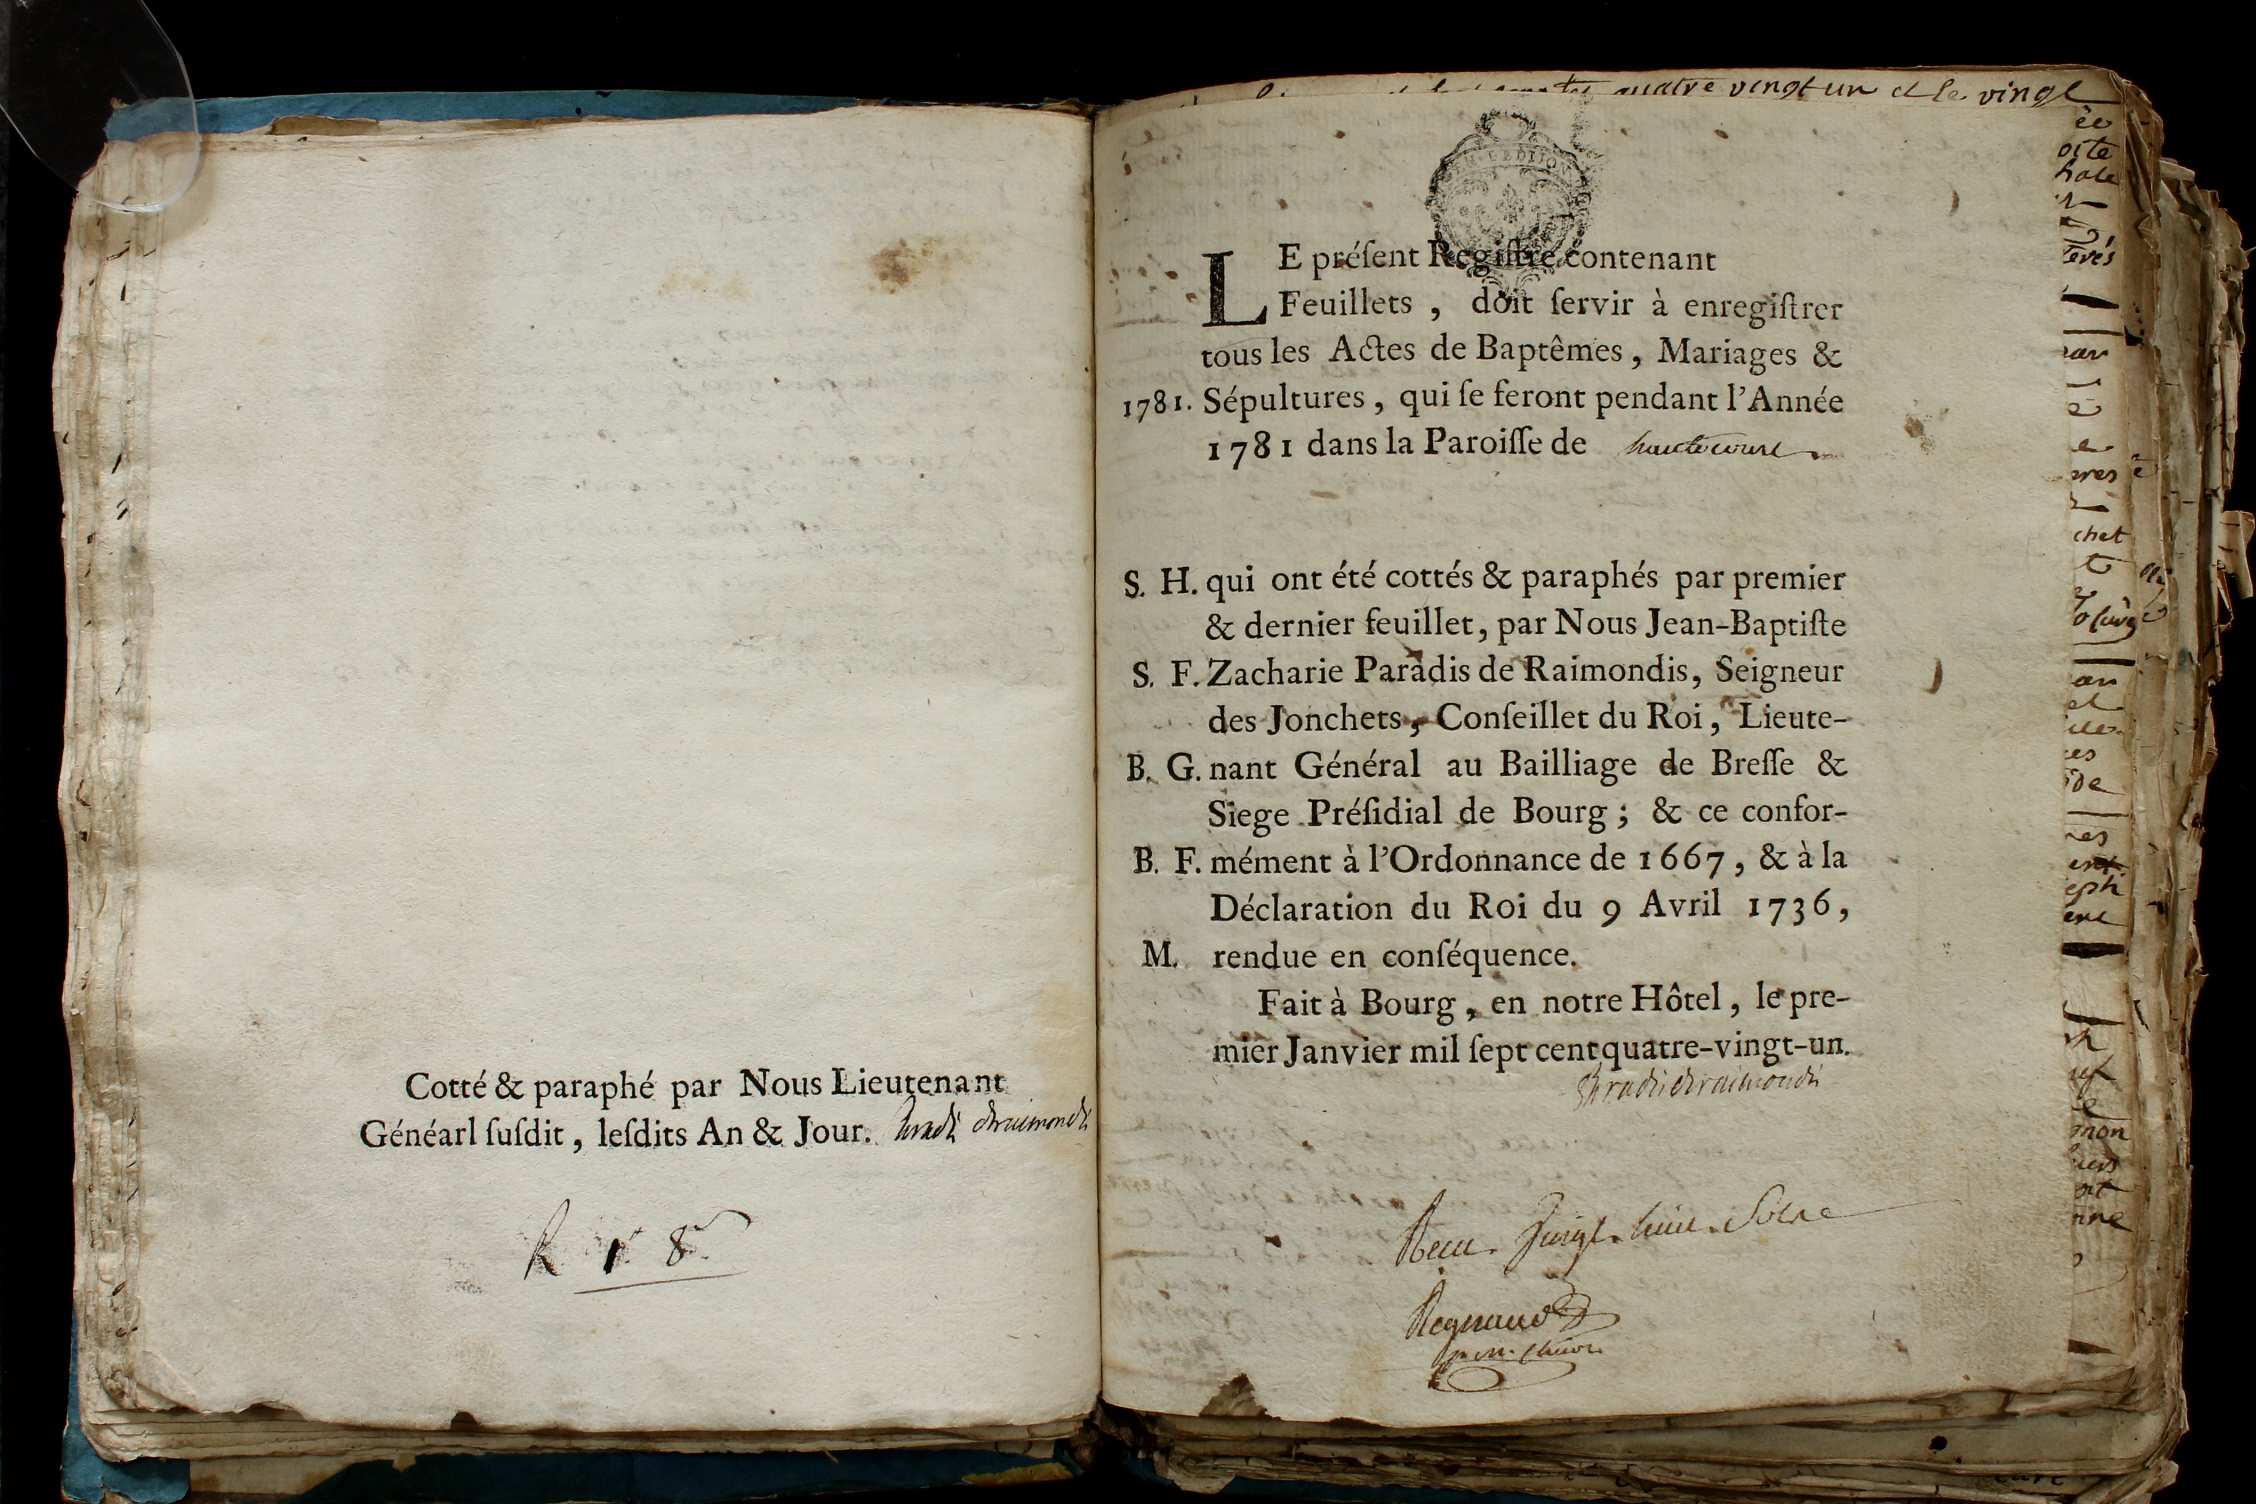 Cotté & paraphé par Nous Lieutenant
Généarl ſuſdit, leſdits An & Jour.
R 1 8
quatre vingt un et le vingt
DIJON
LE préſent Regiſtre contenant
Feuillets, doit ſervir à enregiſtrer
tous les Actes de Baptêmes, Mariages &
1781. Sépultures, qui ſe feront pendant l'Année
1781 dans la Paroiſſe de hautecourt
S. H. qui ont été cottés & paraphés par premier
& dernier feuillet, par Nous Jean-Baptiſte
S. F. Zacharie Paradis de Raimondis, Seigneur
des Jonchets, Conſeillet du Roi, Lieute-
B. G. nant Général au Bailliage de Breſſe &
Siege Préſidial de Bourg; & ce confor-
B. F. mément à l'Ordonnance de 1667, & à la
Déclaration du Roi du 9 Avril 1736,
M. rendue en conſéquence.
Fait à Bourg, en notre Hôtel, le pre-
mier Janvier mil ſept cent quatre-vingt-un.
Paradis deraimondis
Recu vingt huit Sols
Regnaud